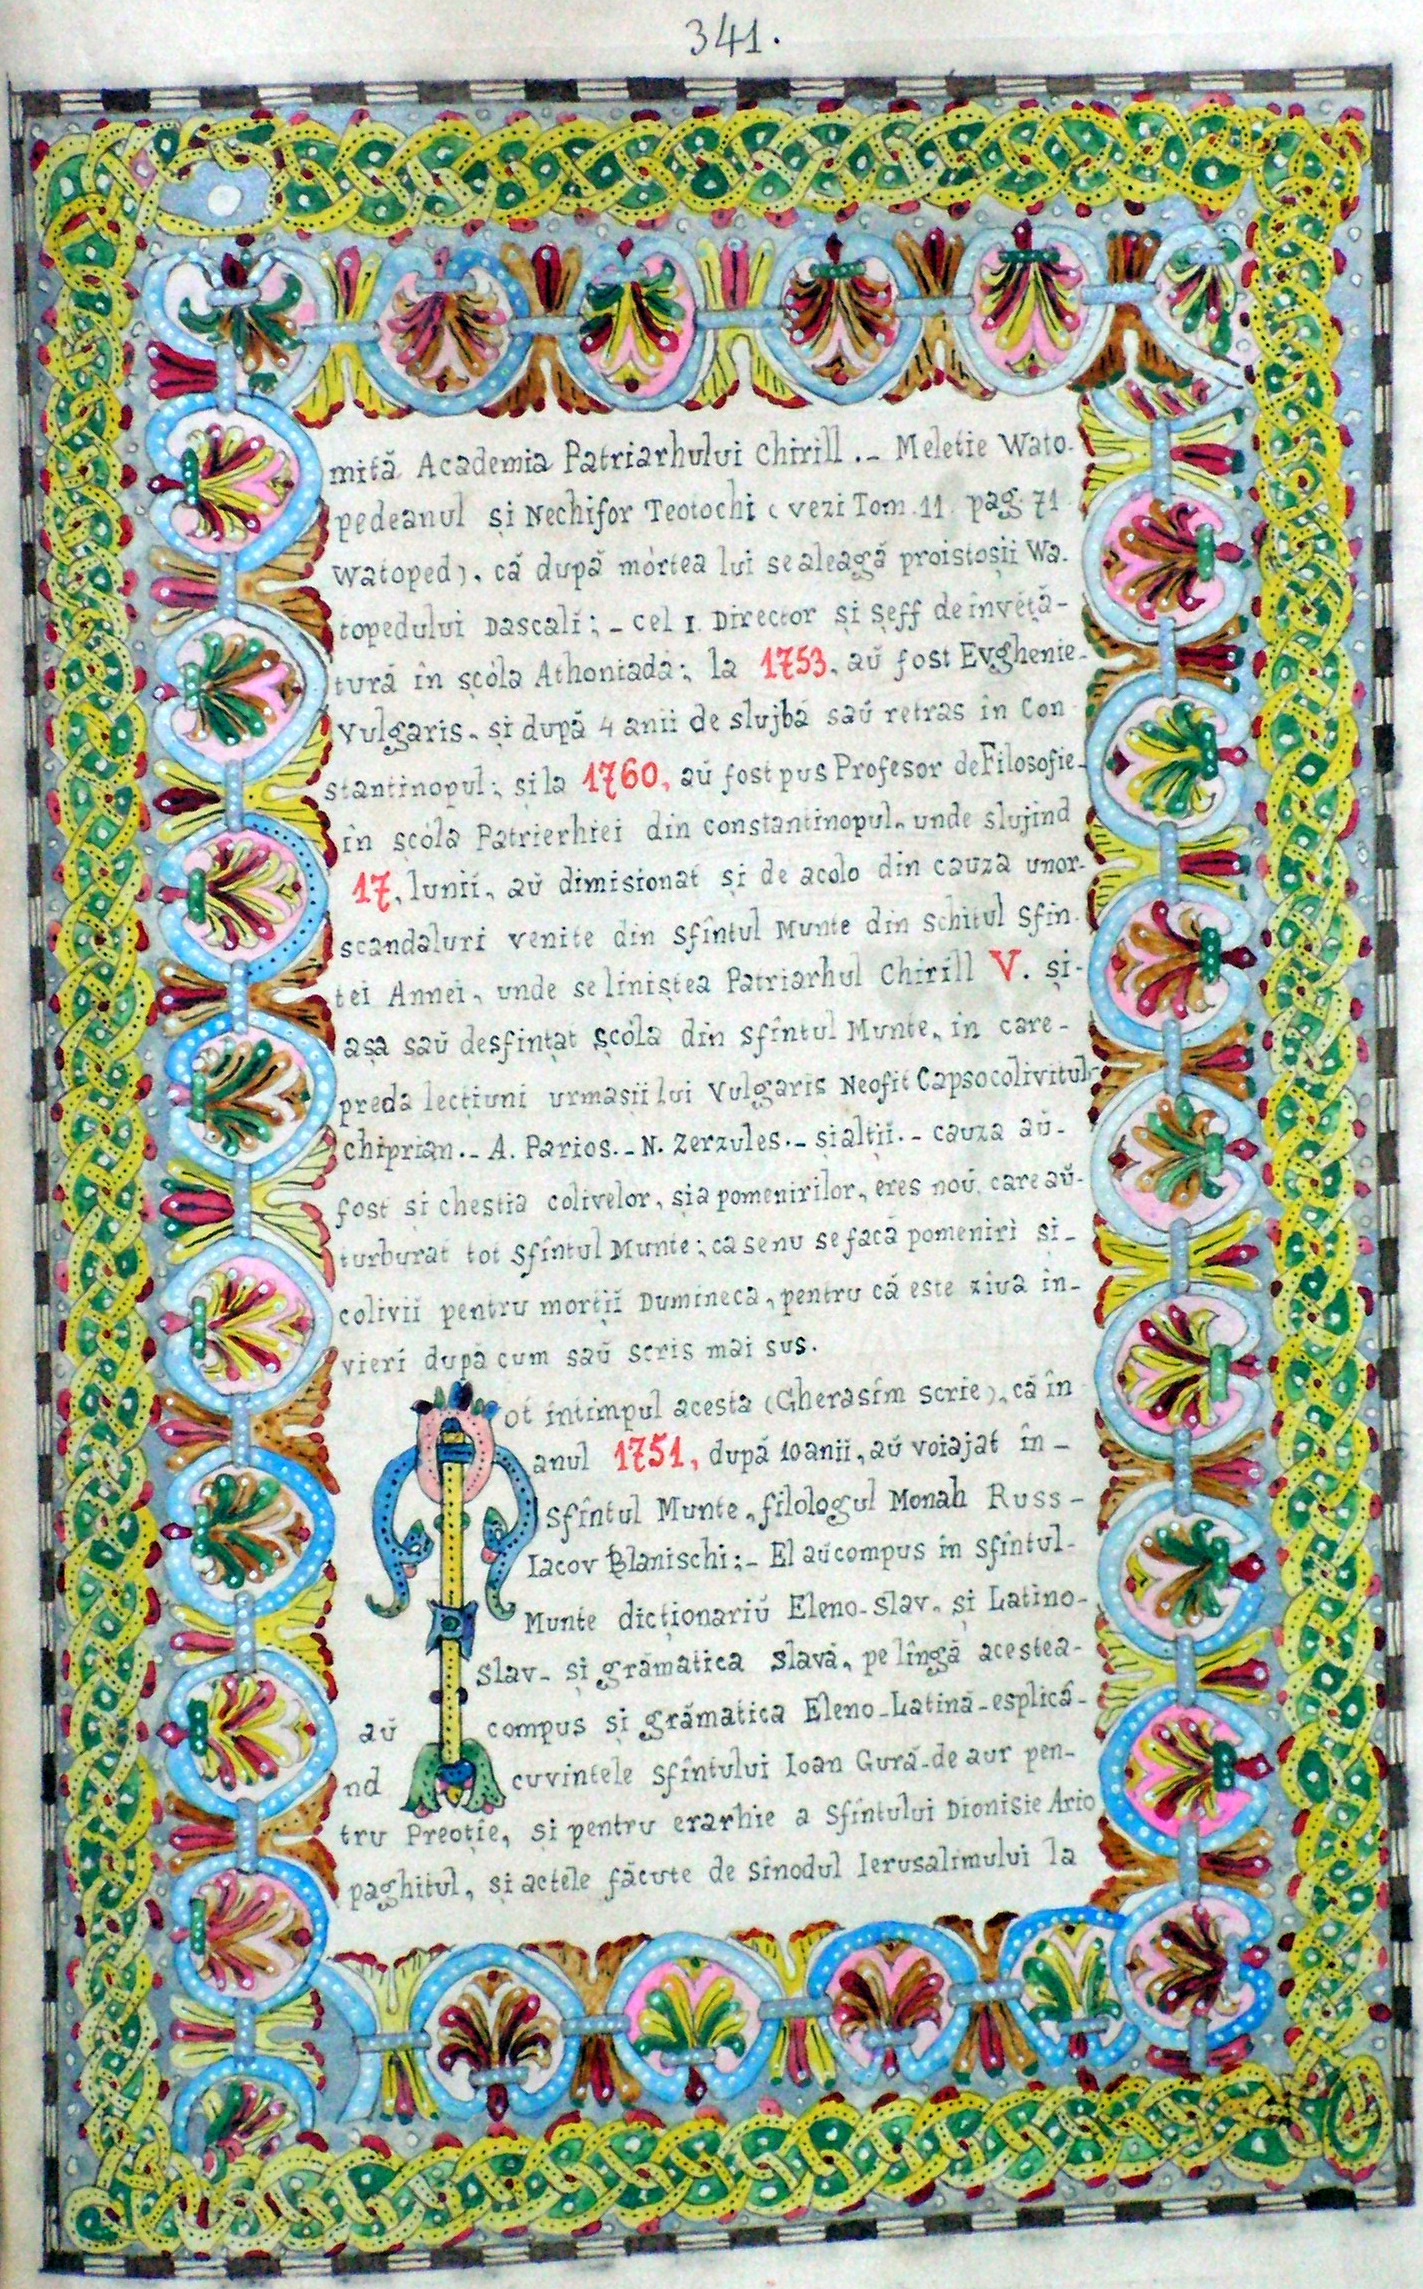 341.
mită Academia Patriarhului Chirill ._ Meletie Wato-
pedeanul și Nechifor Teotochi ( vezi Tom. 11. pag. 71
Watoped). că după mòrtea lui se aleagă proistosii Wa-
topedului Dascali; _ cel I. Director și șeff de învétă-
tură în școla Athoniada; la 1753, aŭ fost Evghenie-
Vulgaris. și după 4 anii de slujbă saŭ retras în Con
stantinopul; si la 1760, aŭ fost pus Profesor de Filosofie-
în școla Patrierhiei din constantinopul. unde slujind
17, lunii, aŭ dimisionat și de acolo din cauza unor-
scandaluri venite din sfîntul Munte din Schitul Sfin-
tei Annei, unde se linistea Patriarhul Chirill V. și-
așa saŭ desfințat școla din sfîntul Munte, in care-
preda lecțiuni urmasii lui Vulgaris Neofit Capsocolivitul
chiprian._ A. Parios._ N. Zerzules._ si alții._ cauza aŭ-
fost si chestia colivelor, si a pomenirilor, eres noŭ, care aŭ-
turburat tot Sfîntul Munte; ca se nu se facă pomeniri si_
colivii pentru morții Dumineca, pentru că este ziua în-
vieri după cum saŭ scris mai sus.
Tot intimpul acesta (Gherasim scrie), că în
anul 1751, după 10 anii, aŭ voiajat în_
Sfîntul Munte, filologul Monah Russ-
Iacov Blanischi;_ El aŭ compus in Sfîntul-
Munte dicționariŭ Eleno-Slav. și Latino-
Slav- și grămatica Slavă, pe lîngă acestea-
aŭ compus și grămatica Eleno-Latină-esplică-
nd cuvintele Sfîntului Ioan Gură-de aur pen-
tru Preoție, și pentru erarhie a Sfîntului Dionisie Ario
paghitul, și actele făcute de Sinodul Ierusalimului la